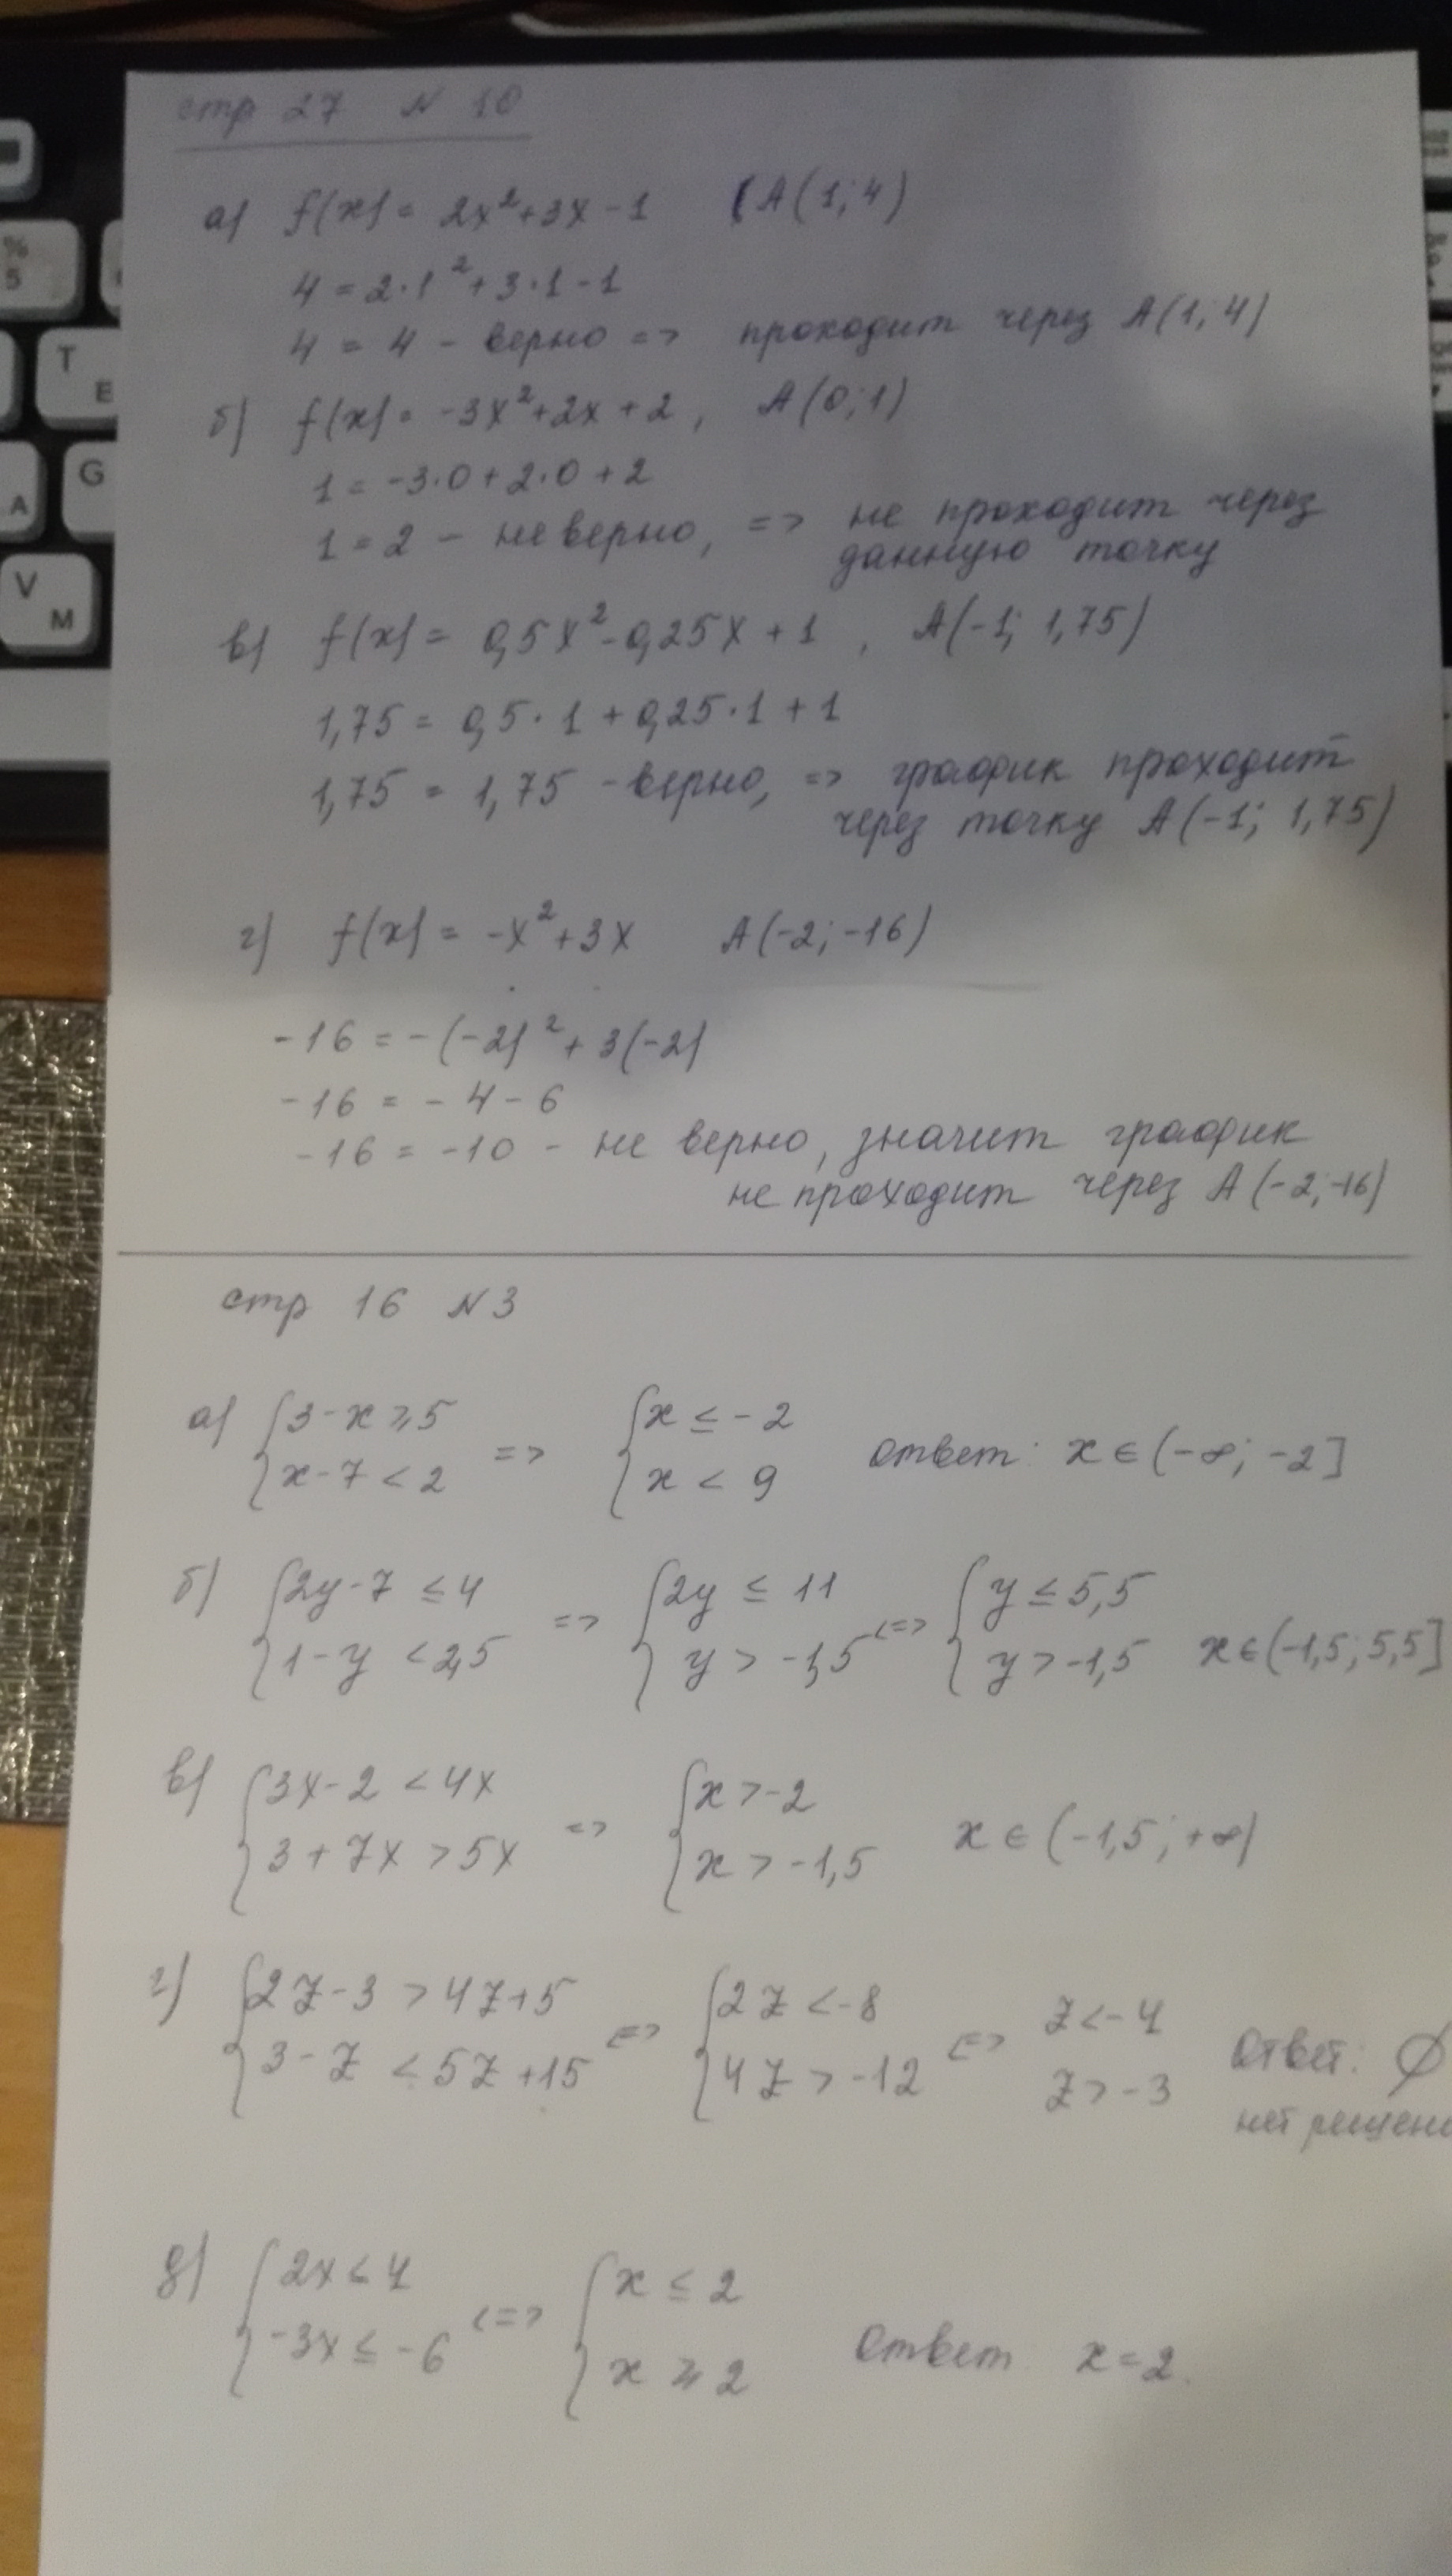 стр 27 N 10
а) f(x) = 2x²+3x-1 (A(1;4)
4 = 2·1²+3·1-1
4 = 4 - верно => проходит через A(1;4)
б) f(x) = -3x²+2x+2, A(0;1)
1 = -3·0+2·0+2
1 = 2 - не верно, => не проходит через
данную точку
в) f(x) = 0,5x²-0,25x+1, A(-1; 1,75)
1,75 = 0,5·1+0,25·1+1
1,75 = 1,75 - верно, => график проходит
через точку A(-1; 1,75)
г) f(x) = -x²+3x A(-2;-16)
-16 = -(-2)²+3(-2)
-16 = -4-6
-16 = -10 - не верно, значит график
не проходит через A(-2;-16)
стр 16 N3
а) {3-x ⩾ 5 => {x ≤ -2
{x-7 < 2 {x < 9 ответ: x ∈ (-∞; -2]
б) {2y-7 ≤ 4 => {2y ≤ 11 <=> {y ≤ 5,5
{1-y < 2,5 {y > -1,5 {y > -1,5 x ∈ (-1,5; 5,5]
в) {3x-2 < 4x => {x > -2
{3+7x > 5x {x > -1,5 x ∈ (-1,5; +∞)
г) {2z-3 > 4z+5 <=> {2z < -8 <=> z < -4
{3-z < 5z+15 {4z > -12 z > -3 ответ: ∅
нет решени
д) {2x ≤ 4 <=> {x ≤ 2
{-3x ≤ -6 {x ⩾ 2 ответ x = 2.
%
5
T
E
A
G
V
M